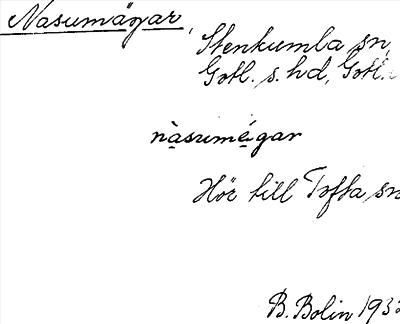 Nasumägar,
Stenkumla sn,
Gotl. s. hd, Gotl.
nàsumégar
Hör till Tofta sn
B. Bolin 193